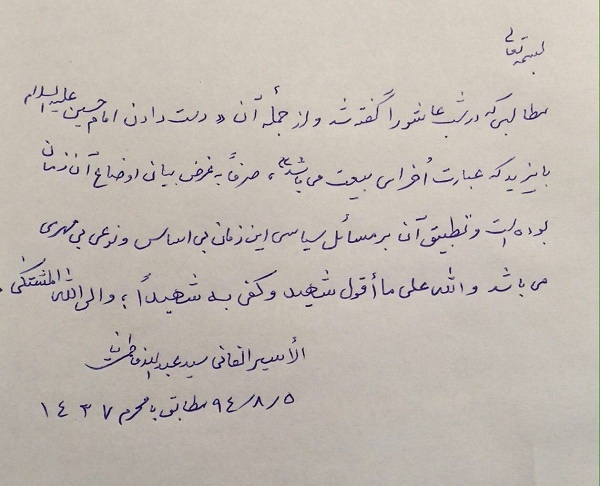 بسمه تعالی
مطالبی که در شب عاشورا گفته شد و از جمله آن «دست دادن امام حسین علیه السلام
با یزید که عبارت اُخرای بیعت می باشد»، صرفاً به غرض بیان اوضاع آن زمان
بوده است و تطبیق آن بر مسائل سیاسی این زمان بی اساس و نوعی بی مهری
می باشد والله علی ما أقول شهید و کفی به شهیداً؛ و الی الله المشتکی.
الأسیر الفانی سید عبدالله فاطمی نیا
۹٤/۸/۵ مطابق با محرم ۱٤۳۷